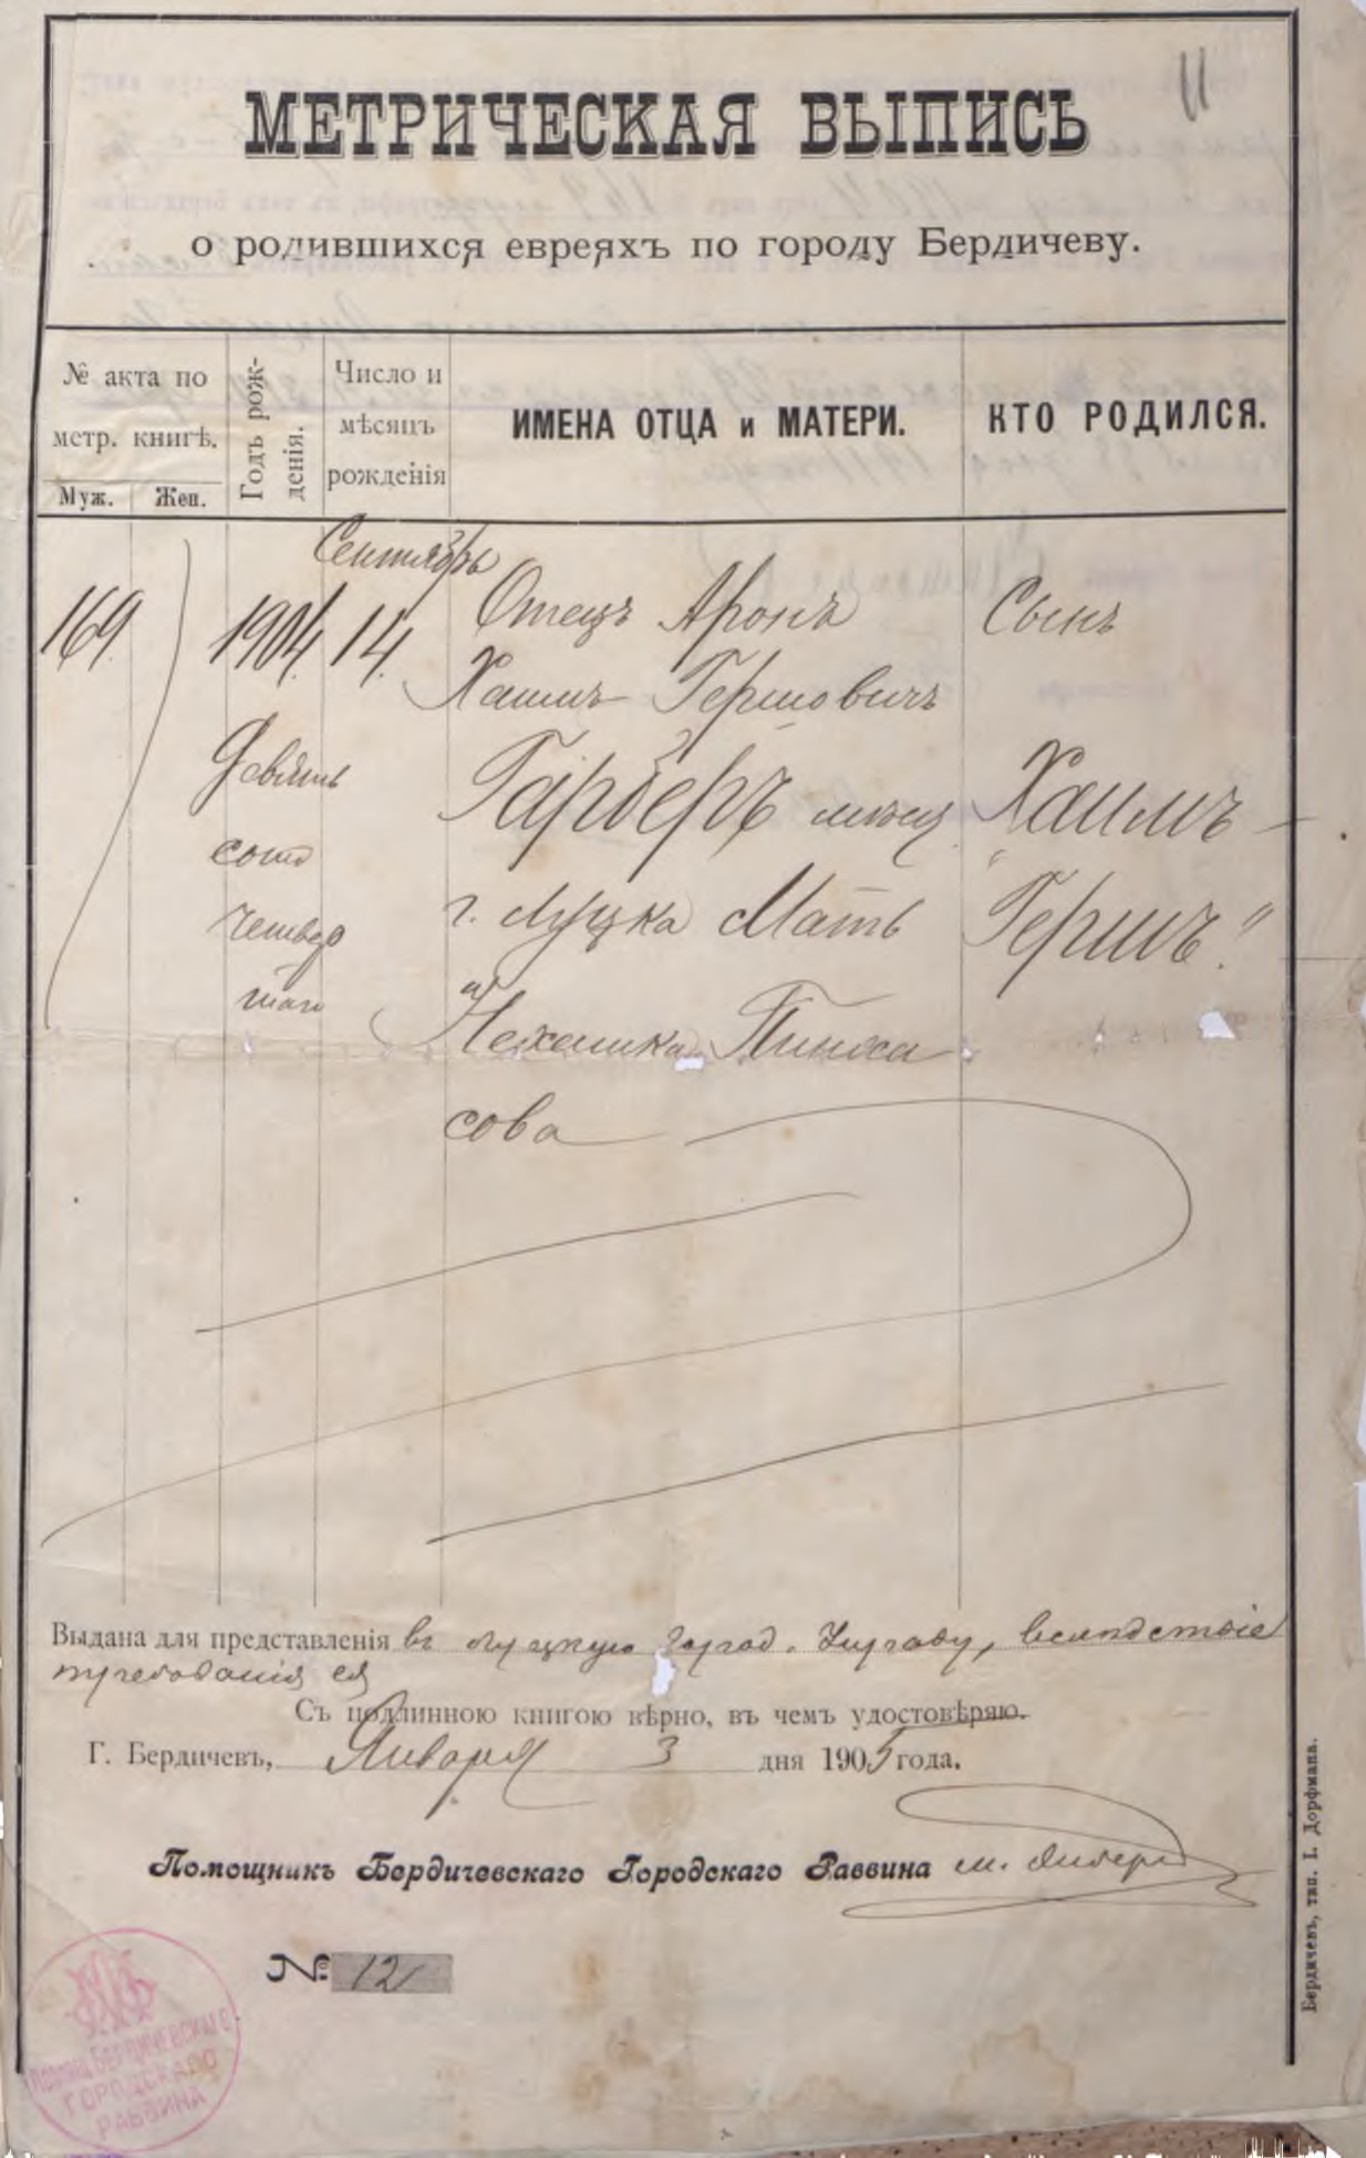 11
МЕТРИЧЕСКАЯ ВЫПИСЬ
о родившихся евреяхъ по городу Бердичеву.
№ акта по
метр. книгѣ.
Муж.
Жен.
Годъ рож-
денія.
Число и
мѣсяцъ
рожденія
ИМЕНА ОТЦА и МАТЕРИ.
КТО РОДИЛСЯ.
169
1904
Девять
сотъ
четвер
таго
Сентябрь
14.
Отецъ Аронъ
Хаимъ Гершовичъ
Гарберъ мѣщ.
г. Луцка Мать
Пинха
сова
Сынъ
„Хаимъ
Гершъ."
Выдана для представленія въ Луцкую Город. Управу, вслѣдствіе
требованія ея
Съ подлинною книгою вѣрно, въ чемъ удостовѣряю.
Г. Бердичевъ, Января 3 дня 1905 года.
Помощникъ Бердичевскаго Городскаго Раввина
№ 12
Помощ. Бердичевскаго
ГОРОДСКАГО
РАВВИНА
Бердичевъ, тип. І. Дорфмана.